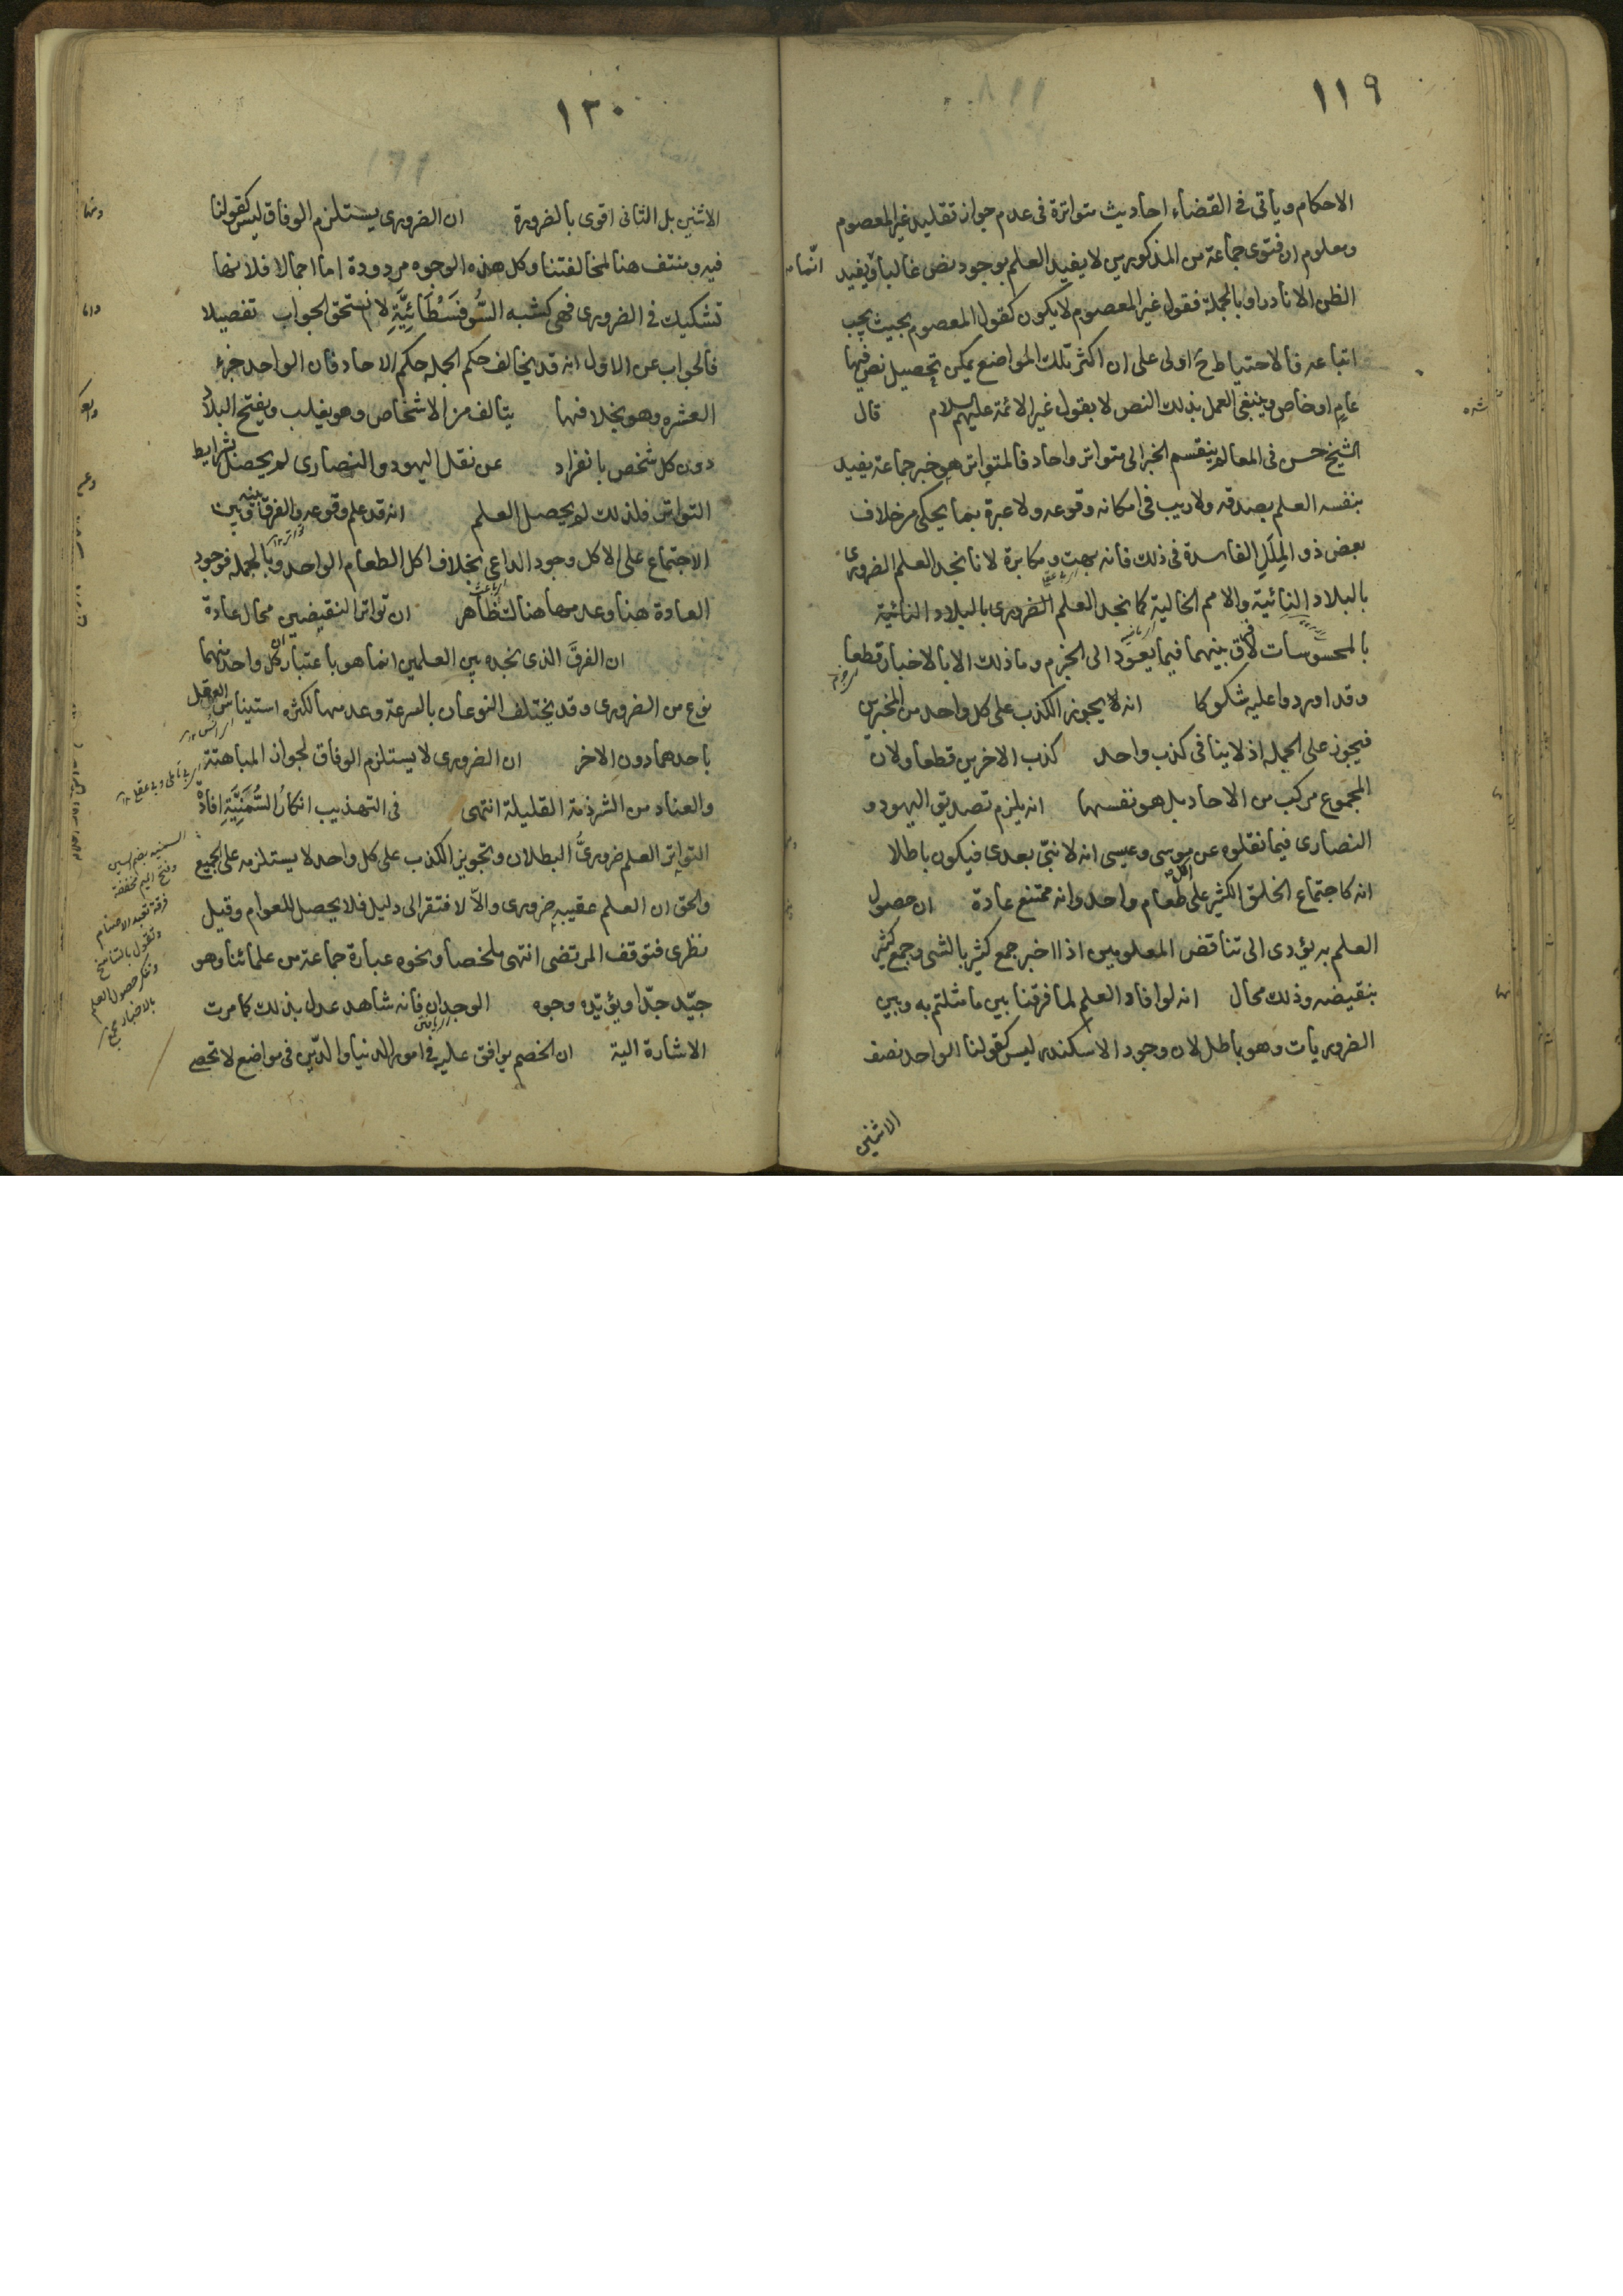 ١١٩
الاحكام وياتى فى القضاء احاديث متواترة فى عدم جواز تقليد غير المعصوم
ومعلوم ان فتوى جماعة من المذكورين لا يفيد العلم بوجود نص غالبا ويفيد
الظن الا نادرا وبالجملة فقول غير المعصوم لا يكون كقول المعصوم بحيث يجب
اتباعه فالاحتياط ح اولى على ان اكثر تلك المواضع يمكن تحصيل نص فيها
عام او خاص وينبغى العمل بذلك النص لا بقول غير الائمة عليهم السلام قال
الشيخ حسن فى المعالم ينقسم الخبر الى متواتر واحاد فالمتواتر هو خبر جماعة يفيد
بنفسه العلم بصدقه ولا ريب فى امكانه وقوعه ولا عبرة بما يحكى من خلاف
بعض ذو الملل الفاسدة فى ذلك فانه بهت ومكابرة لانا نجد العلم الضرورى
بالبلاد النائية والامم الخالية كما نجد العلم الضرورى بالبلاد النائية
بالمحسوسات لا فرق بينهما فيما يعود الى الجزم وما ذلك الا بالاخبار قطعا
وقد اوردوا عليه شكوكا انه لا يجوز الكذب على كل واحد من المخبرين
فيجوز على الجملة اذ لا ينافى كذب واحد كذب الاخرين قطعا ولان
المجموع مركب من الاحاد بل هو نفسها انه يلزم تصديق اليهود و
النصارى فيما نقلوه عن موسى وعيسى انه لا نبى بعدى فيكون باطلا
انه كاجتماع الخلق الكثير على اكل طعام واحد وانه ممتنع عادة ان حصول
العلم به يؤدى الى تناقض المعلومين اذا اخبر جمع كثير بالشى وجمع كثير
بنقيضه وذلك محال انه لو افاد العلم لما فرقنا بين ما مثلتم به وبين
الضروريات وهو باطل لان وجود الاسكندر ليس كقولنا الواحد نصف
الاثنين
١٢٠
الاثنين بل الثانى اقوى بالضرورة ان الضرورى يستلزم الوفاق ليس كقولنا
فيه وينتف هنا لمخالفتنا وكل هذه الوجوه مردودة اما اجمالا فلانها
تشكيك فى الضرورى فهى كشبه السوفسطائية لا تستحق الجواب تفصيلا
فالجواب عن الاول انه قد يخالف حكم الجملة حكم الاحاد فان الواحد جزء
العشره وهو بخلافها يتالف من الاشخاص وهو يغلب ويفتح البلاد
دون كل شخص بانفراد عن نقل اليهود والنصارى لم يحصل بشرايط
التواتر فلذلك لم يحصل العلم انه قد علم وقوعه والفرق بينه وبين
الاجتماع على الاكل وجود الداعى بخلاف اكل الطعام الواحد وبالجملة فوجود
العادة هنا وعدمها هناك ظاهر ان تواتر النقيضين محال عادة
ان الفرق الذى نجده بين العلمين انما هو باعتبار ان كل واحد منهما
نوع من الضرورى وقد يختلف النوعان بالسرعة وعدمها لكثرة استيناس العقل
باحدهما دون الاخر ان الضرورى لا يستلزم الوفاق لجواز المباهتة
والعناد من الشرذمة القليلة انتهى فى التهذيب انكار السمنية افادة
التواتر العلم ضرورى البطلان وتجويز الكذب على كل واحد لا يستلزمه على الجميع
والحق ان العلم عقيبه ضرورى والا لافتقر الى دليل فلا يحصل للعوام وقيل
نظرى فتوقف المرتضى انتهى ملخصا ونحوه عبارة جماعة من علمائنا وهو
جيد جدا ويؤيده وجوه الوجدان فانه شاهد عدل بذلك كما مرت
الاشارة اليه ان الخصم يوافق عليه فى امور الدنيا والدين فى مواضع لا تحصى
السمنيه بضم السين
وفتح الميم مخففة
فرقة تعبد الاصنام
وتقول بالتناسخ
وتنكر حصول العلم
بالاخبار